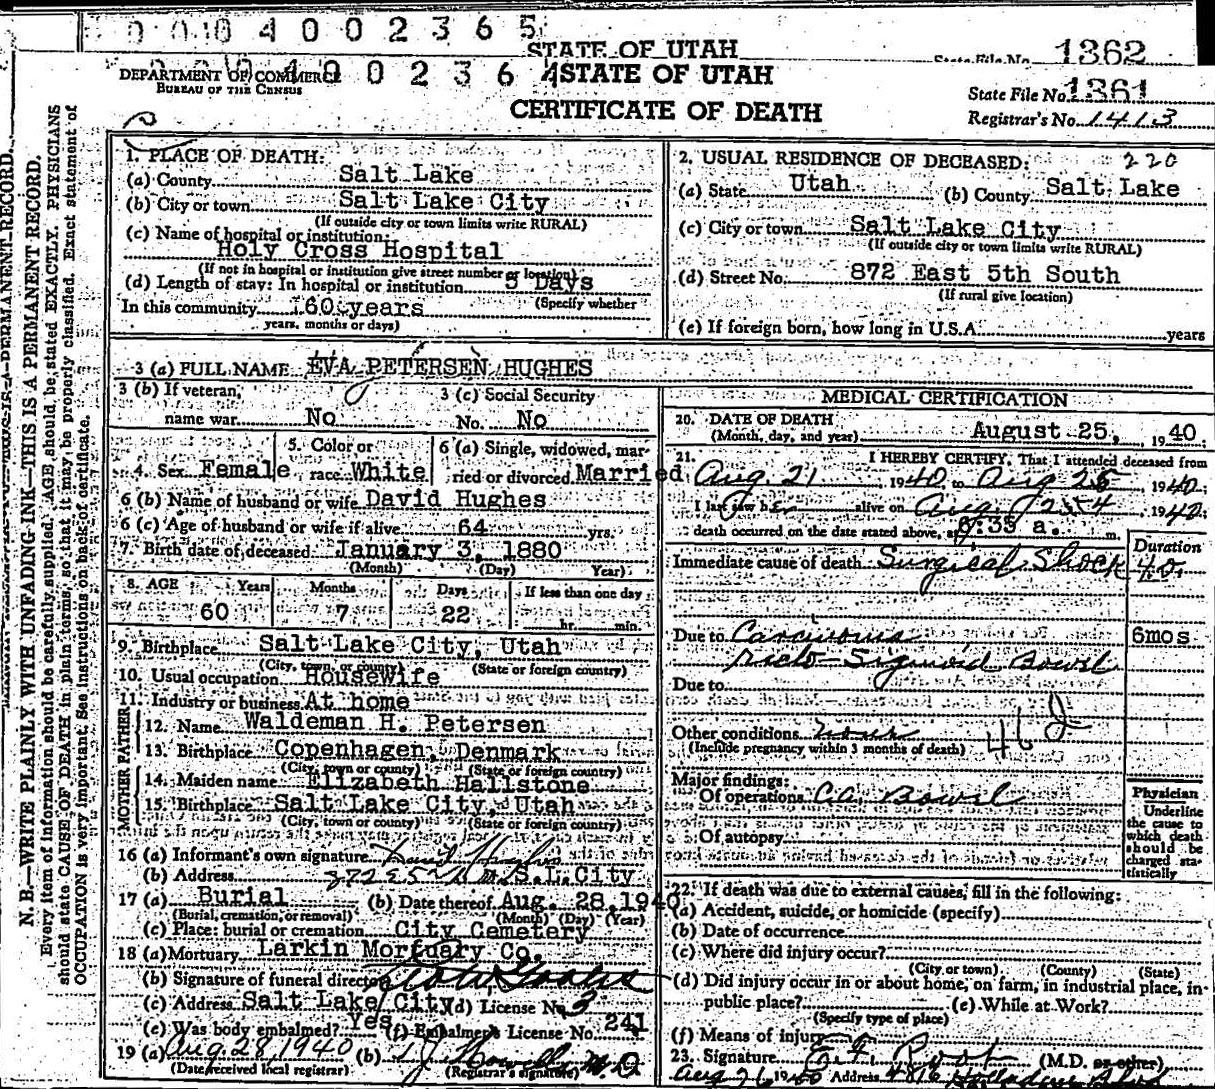 0 0 10 4 0 0 2 3 6 5
STATE OF UTAH
State File No. 1362
DEPARTMENT OF COMMERCE
BUREAU OF THE CENSUS
4 0 0 2 3 6 4
STATE OF UTAH
CERTIFICATE OF DEATH
State File No. 1361
Registrar's No. 1413
N. B.—WRITE PLAINLY WITH UNFADING INK—THIS IS A PERMANENT RECORD.
Every item of information should be carefully supplied. AGE should be stated EXACTLY. PHYSICIANS
should state CAUSE OF DEATH in plain terms, so that it may be properly classified. Exact statement of
OCCUPATION is very important. See instructions on back of certificate.
1. PLACE OF DEATH:
(a) County Salt Lake
(b) City or town Salt Lake City
(If outside city or town limits write RURAL)
(c) Name of hospital or institution:
Holy Cross Hospital
(If not in hospital or institution give street number or location)
(d) Length of stay: In hospital or institution 5 Days
In this community 60 years (Specify whether
years, months or days)
2. USUAL RESIDENCE OF DECEASED: 220
(a) State Utah (b) County Salt Lake
(c) City or town Salt Lake City
(If outside city or town limits write RURAL)
(d) Street No. 872 East 5th South
(If rural give location)
(e) If foreign born, how long in U.S.A. years
3 (a) FULL NAME EVA PETERSEN HUGHES
3 (b) If veteran,
name war. No
3 (c) Social Security
No. No
4. Sex Female
5. Color or
race White
6 (a) Single, widowed, mar-
ried or divorced. Married
6 (b) Name of husband or wife David Hughes
6 (c) Age of husband or wife if alive 64 yrs.
7. Birth date of deceased January 3, 1880
(Month) (Day) Year)
8. AGE Years Months Days If less than one day
60 7 22 hr. min.
9. Birthplace Salt Lake City, Utah
(City, town, or county) (State or foreign country)
10. Usual occupation Housewife
11. Industry or business At home
FATHER
12. Name Waldeman H. Petersen
13. Birthplace Copenhagen, Denmark
(City, town or county) (State or foreign country)
MOTHER
14. Maiden name Elizabeth Hailstone
15. Birthplace Salt Lake City, Utah
(City, town or county) (State or foreign country)
16 (a) Informant's own signature David Hughes
(b) Address 872 E 5th S.L.City
17 (a) Burial (b) Date thereof Aug. 28, 1940
(Burial, cremation, or removal) (Month) (Day) (Year)
(c) Place: burial or cremation City Cemetery
18 (a) Mortuary Larkin Mortuary Co.
(b) Signature of funeral director
(c) Address Salt Lake City (d) License No. 3
(e) Was body embalmed? Yes (f) Embalmer's License No. 241
19 (a) Aug. 28, 1940 (b) M.D.
(Date received local registrar) (Registrar's signature)
MEDICAL CERTIFICATION
20. DATE OF DEATH
(Month, day, and year) August 25, 1940
21. I HEREBY CERTIFY, That I attended deceased from
Aug. 21 1940, to Aug 25 1940;
I last saw her alive on Aug. 25th, 1940;
death occurred on the date stated above, at :35 a. m.
Duration
Immediate cause of death Surgical Shock
Due to Carcinoma 6mos
recto-Sigmoid Bowel
Due to
Other conditions none
(Include pregnancy within 3 months of death)
46
Major findings:
Of operations Ca. Bowel
Of autopsy
Physician
Underline
the cause to
which death
should be
charged sta-
tistically
22. If death was due to external causes, fill in the following:
(a) Accident, suicide, or homicide (specify)
(b) Date of occurrence
(c) Where did injury occur?
(City or town) (County) (State)
(d) Did injury occur in or about home, on farm, in industrial place, in
public place? (e) While at Work?
(Specify type of place)
(f) Means of injury
23. Signature Root (M.D. or other)
Aug 26, 1940 Address